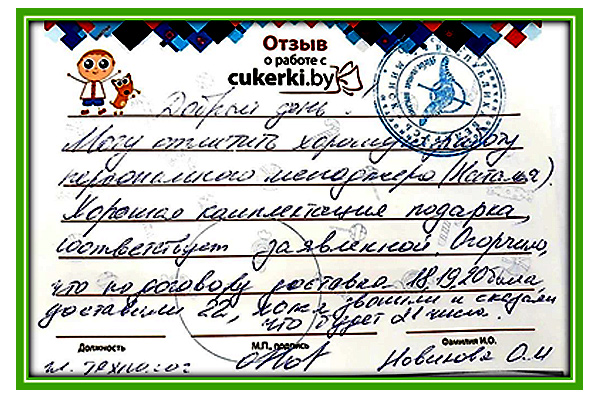 Отзыв
о работе с
cukerki.by
Добрый день.
Могу отметить хорошую работу
персонального менеджера (Наталья).
Хорошая комплектация подарка,
соответствует заявленной. Огорчило,
что по договору доставка 18,19,20 была,
доставили 22, хотя звонили и сказали
что будет 21 числа.
Должность
М.П., подпись
Фамилия И.О.
гл. технолог
Новикова О.И